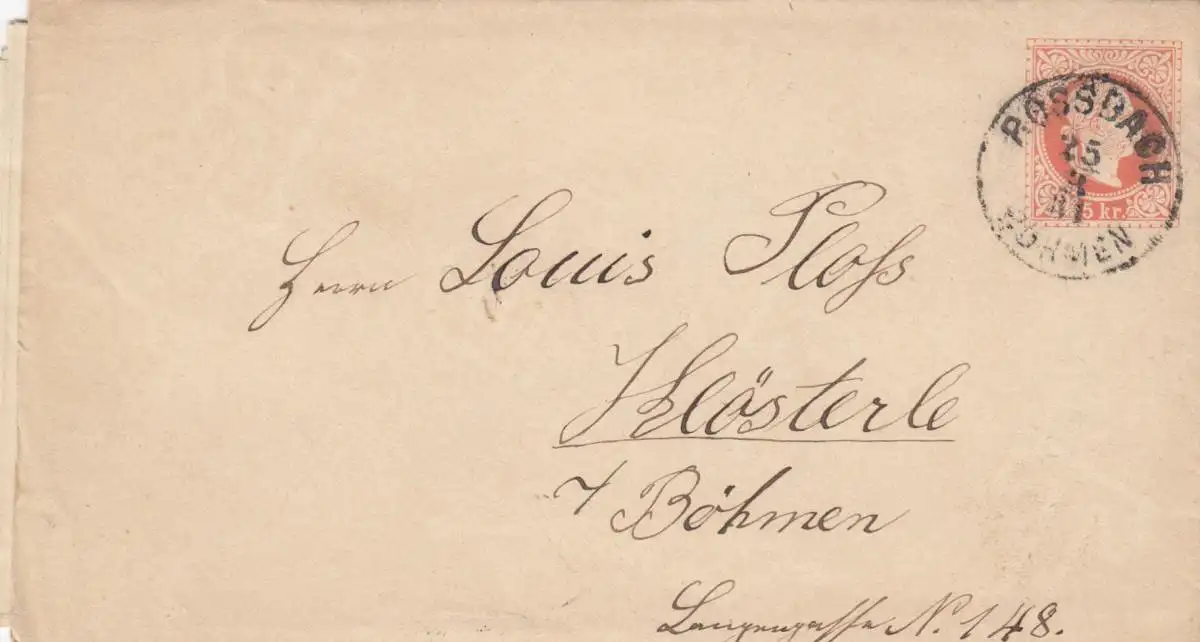 ROSSBACH
25
3
81
BÖHMEN
5 kr.
Herrn Louis Ploss
Klösterle
i/ Böhmen
Langengasse N. 148.